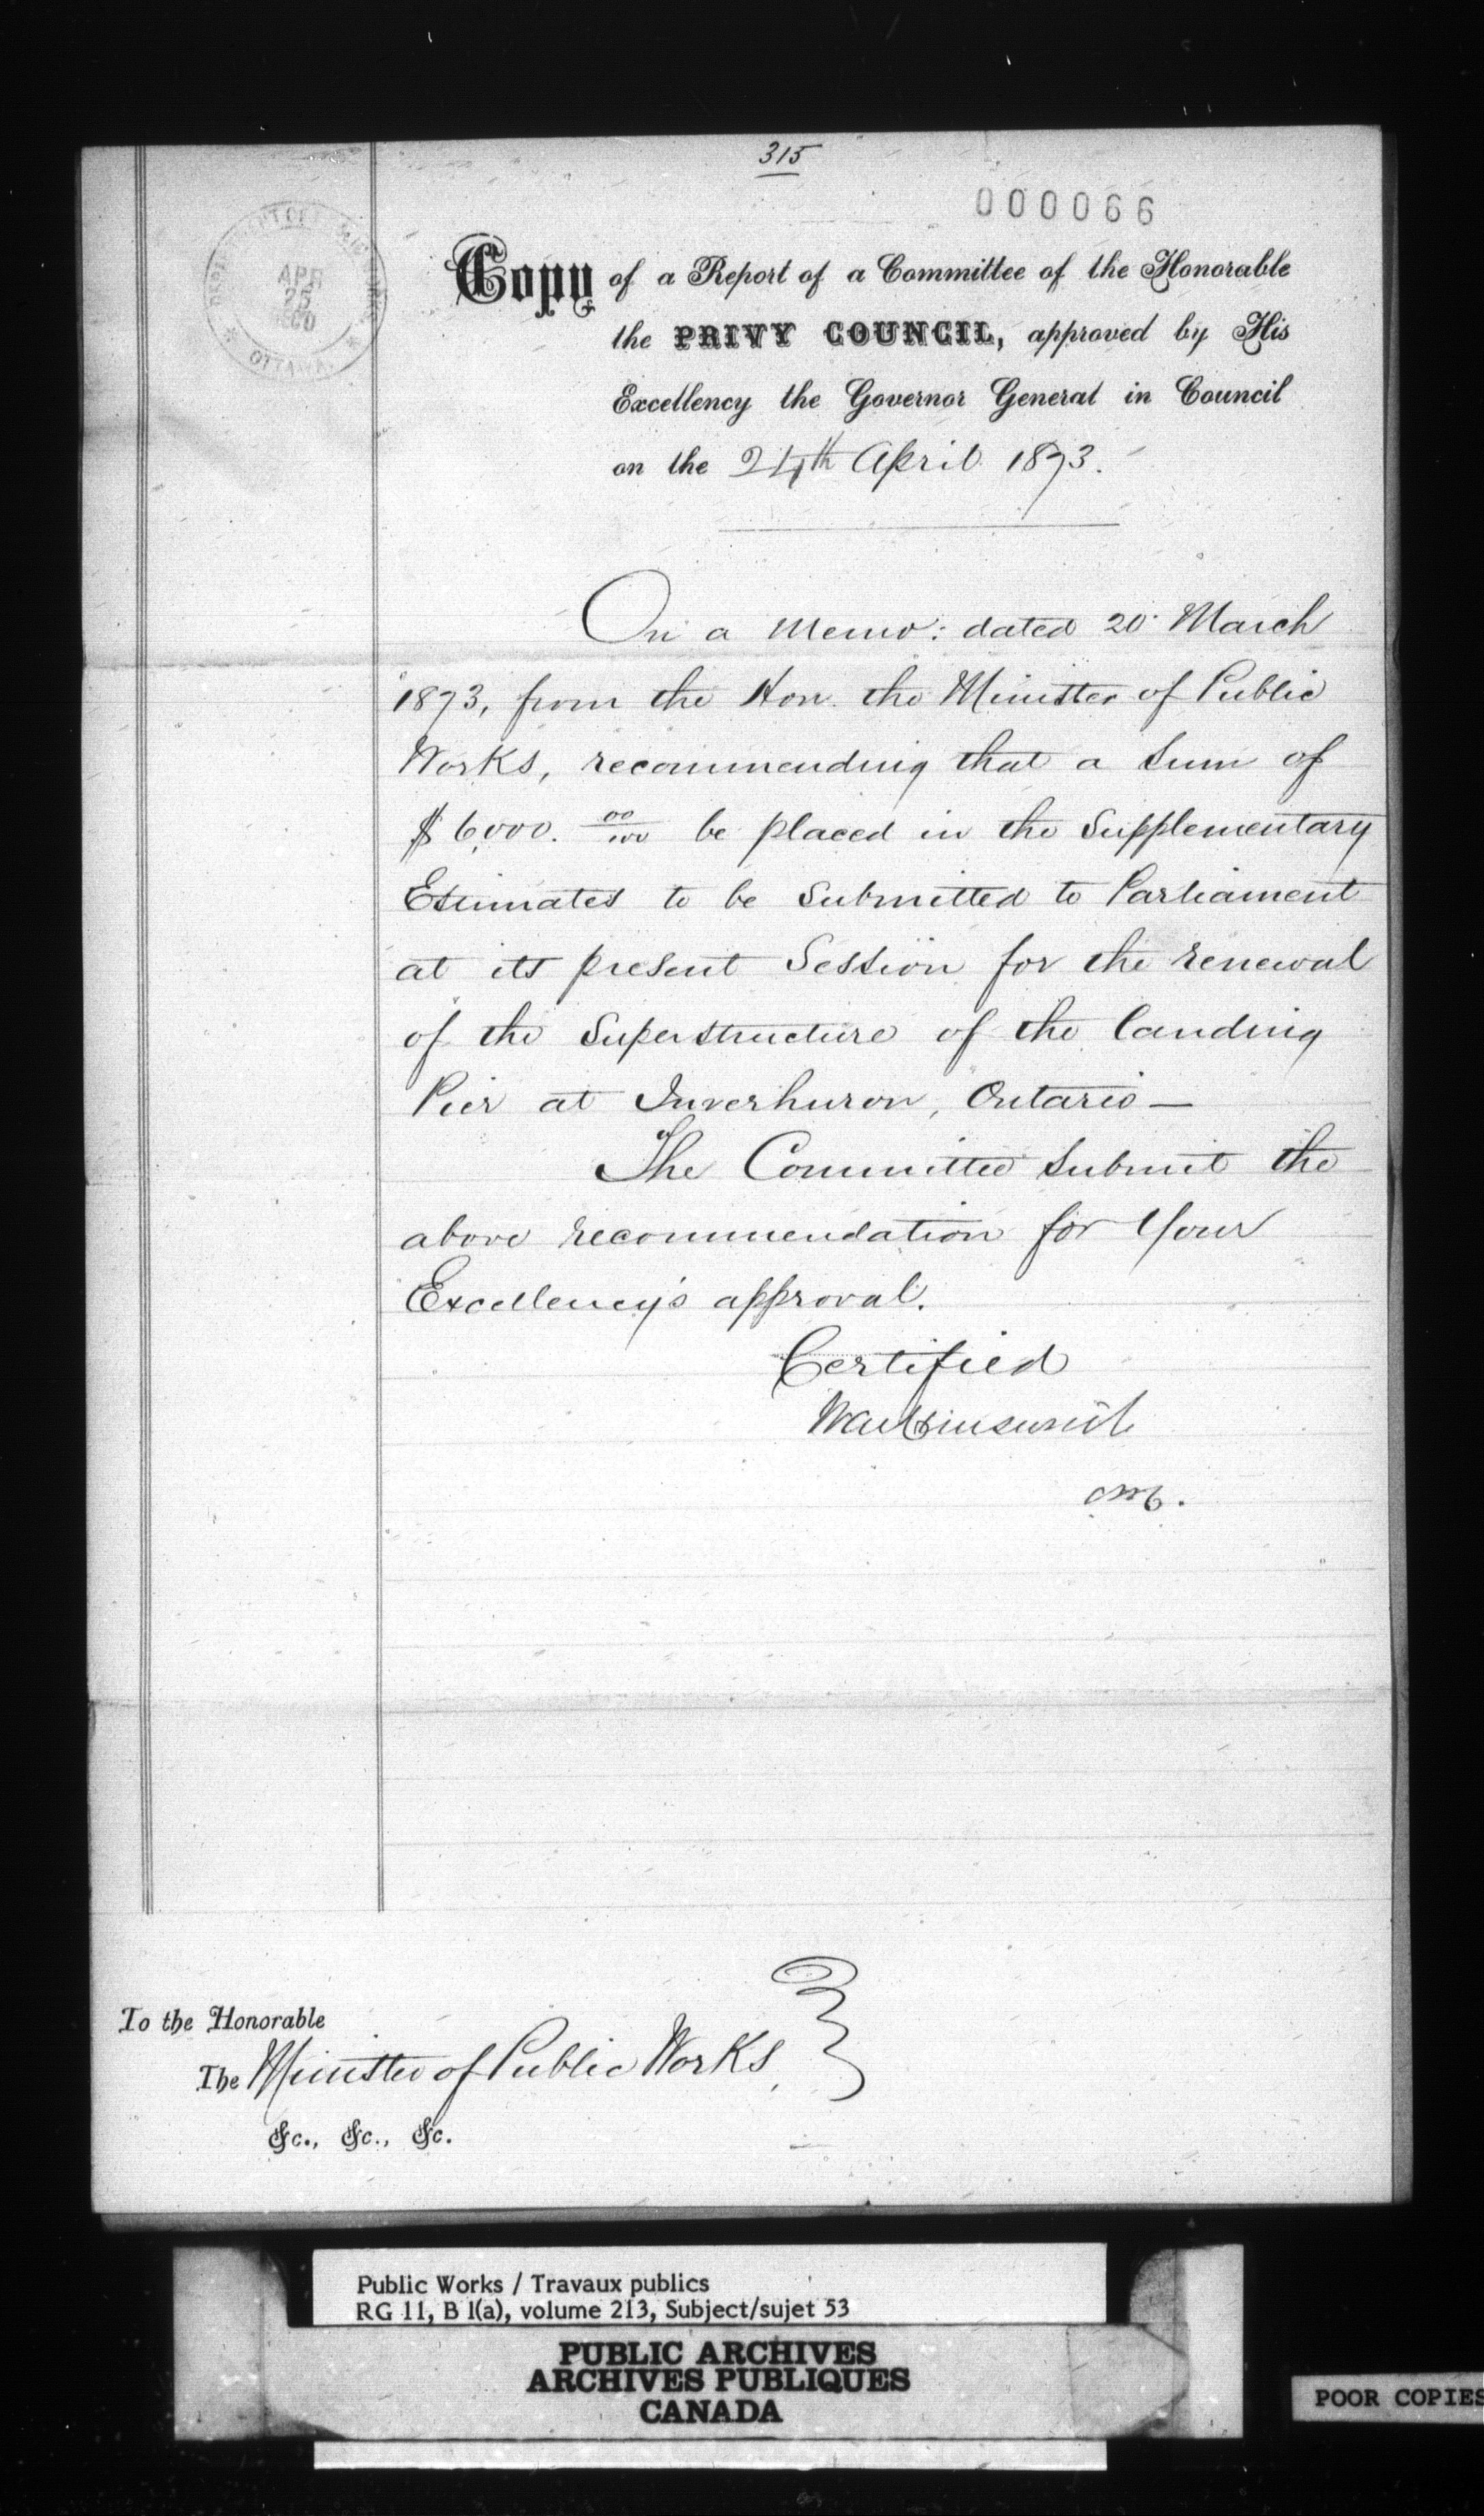 315
000066
DEPARTMENT OF PUBLIC WORKS
APR
25
OTTAWA.
Copy of a Report of a Committee of the Honorable
the PRIVY COUNCIL, approved by His
Excellency the Governor General in Council
on the 24th April 1873.
On a Memo: dated 20 March
1873, from the Hon. the Minister of Public
Works, recommending that a Sum of
$6,000. 00/100 be placed in the Supplementary
Estimates to be Submitted to Parliament
at its present Session for the renewal
of the Superstructure of the landing
Pier at Inverhuron, Ontario —
The Committee Submit the
above recommendation for Your
Excellency's approval.
Certified
To the Honorable
The Minister of Public Works,
&c., &c., &c.
Public Works / Travaux publics
RG 11, B 1(a), volume 213, Subject/sujet 53
PUBLIC ARCHIVES
ARCHIVES PUBLIQUES
CANADA
POOR COPIES